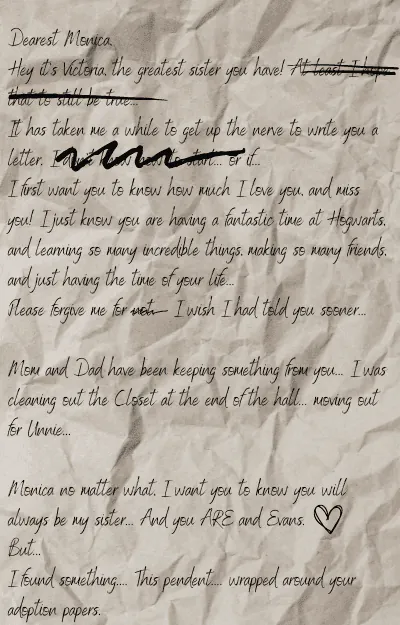 Dearest Monica,
Hey it's Victoria, the greatest sister you have! At least I hope
that to still be true...
It has taken me a while to get up the nerve to write you a
letter. I don't know how to start... or if...
I first want you to know how much I love you, and miss
you! I just know you are having a fantastic time at Hogwarts,
and learning so many incredible things, making so many friends,
and just having the time of your life...
Please forgive me for not... I wish I had told you sooner...
Mom and Dad have been keeping something from you... I was
cleaning out the Closet at the end of the hall... moving out
for Unnie...
Monica no matter what, I want you to know you will
always be my sister... And you ARE and Evans.
But...
I found something.... This pendent.... wrapped around your
adoption papers.